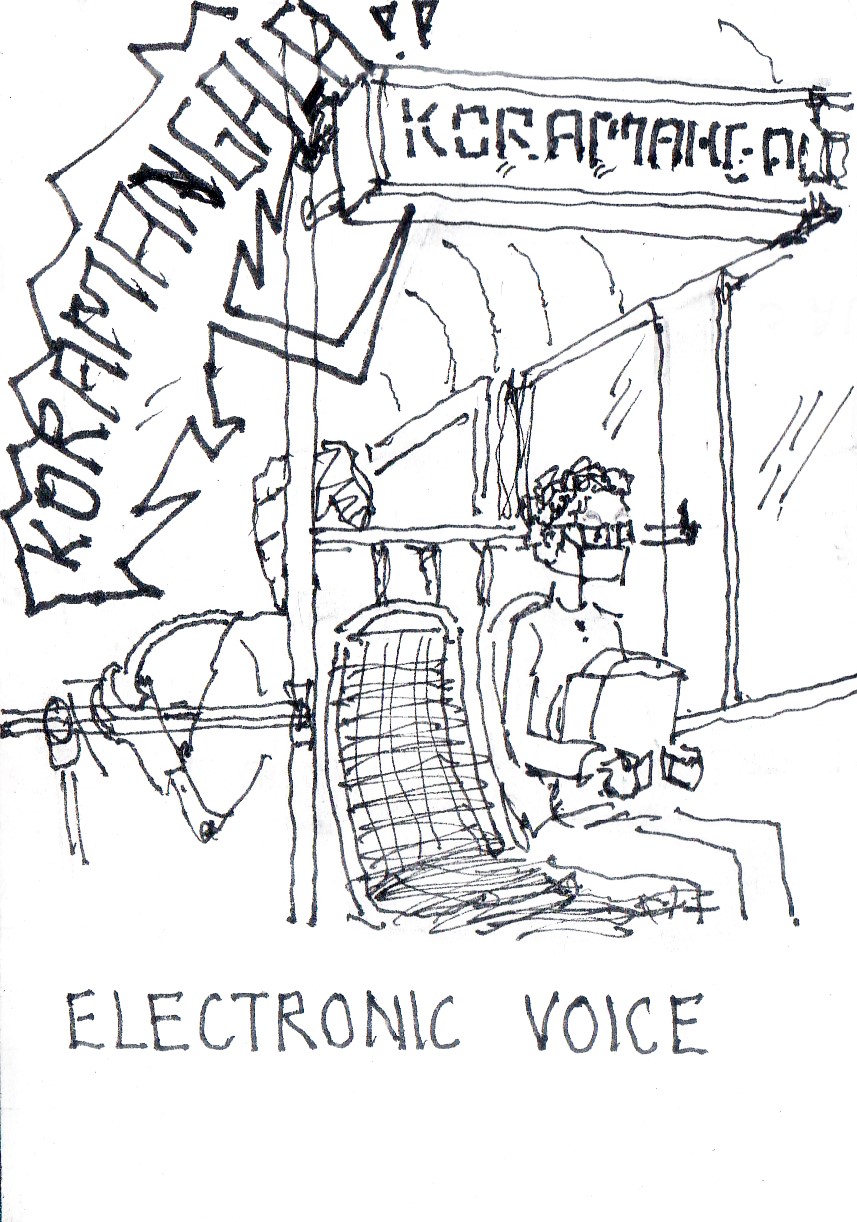 KORAMANGALA!!
KORAMANGALA
ELECTRONIC VOICE